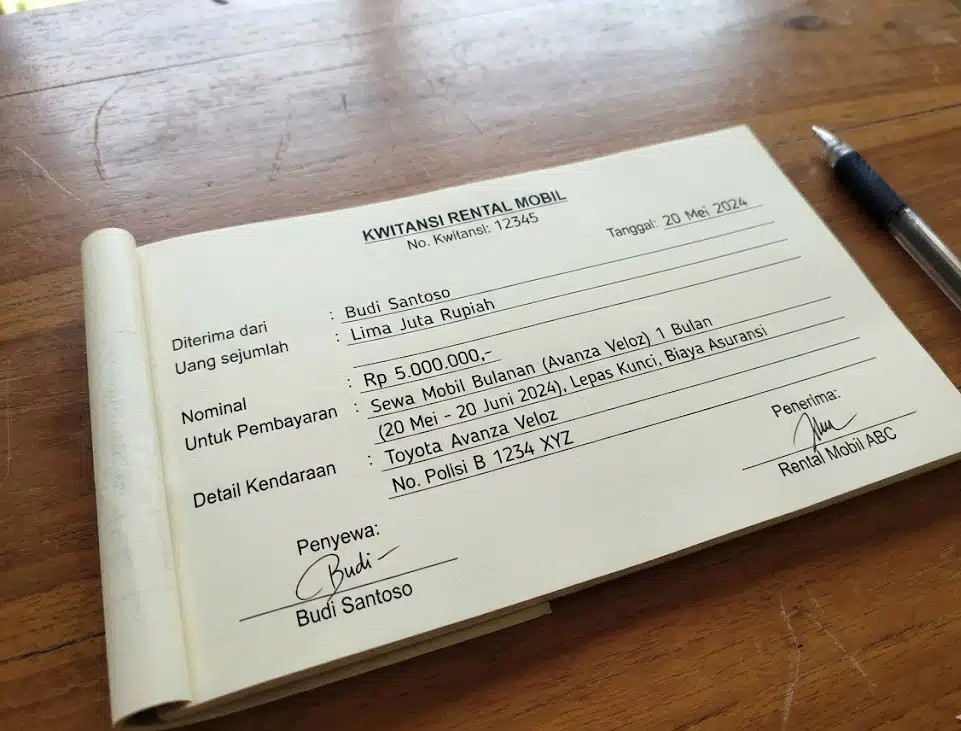 KWITANSI RENTAL MOBIL
No. Kwitansi: 12345
Tanggal: 20 Mei 2024
Diterima dari : Budi Santoso
Uang sejumlah : Lima Juta Rupiah
Nominal : Rp 5.000.000,-
Untuk Pembayaran : Sewa Mobil Bulanan (Avanza Veloz) 1 Bulan
(20 Mei - 20 Juni 2024), Lepas Kunci, Biaya Asuransi
Detail Kendaraan : Toyota Avanza Veloz
No. Polisi B 1234 XYZ
Penyewa:
Budi-
Budi Santoso
Penerima:
Rental Mobil ABC